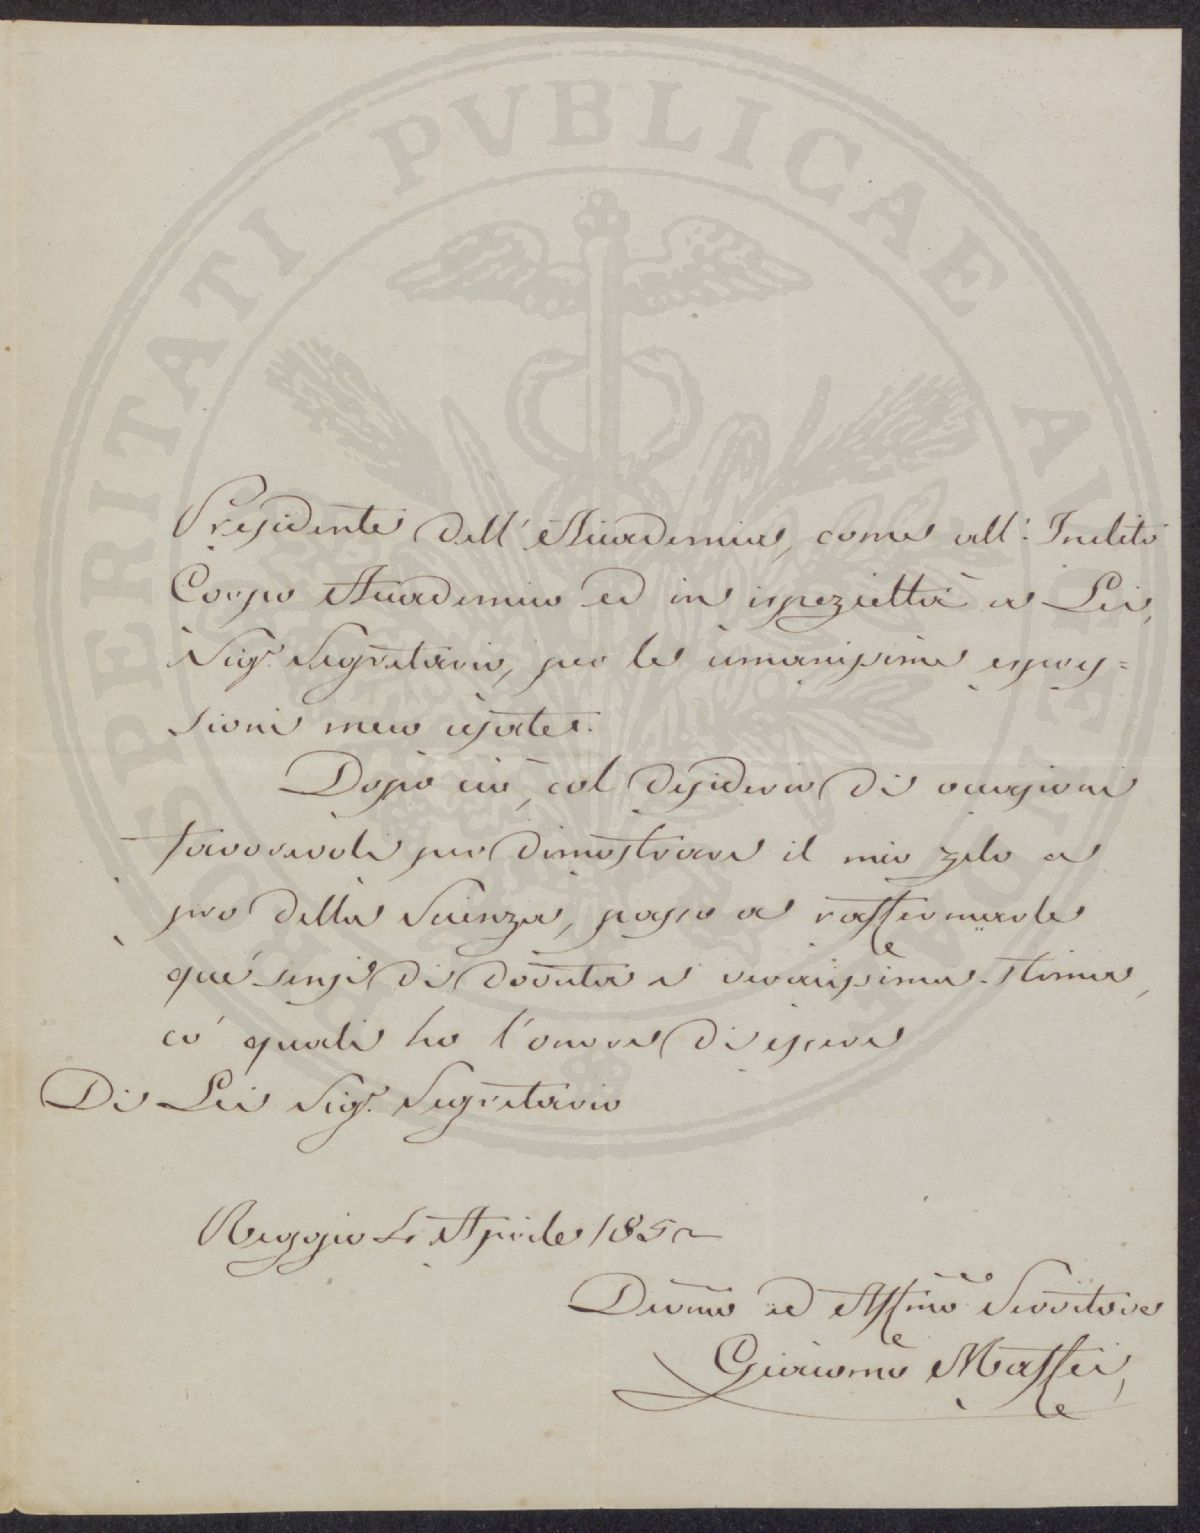 PROSPERITATI PVBLICAE AVGENDAE
Presidente dell'Accademia, come all'Inclito
Corpo Accademico ed in ispezieltà a Lei,
Sigr. Segretario, per le umanissime espres=
sioni meco usate.
Dopo ciò, col desiderio di occasioni
favorevoli per dimostrare il mio zelo a
pro della Scienza, passo a raffermarle
que' sensi di dovuta e veracissima stima,
co' quali ho l'onore di essere
Di Lei Sigr. Segretario
Reggio 4 Aprile 1852
Devmo ed Affmo Servitore
Giacomo Maffei